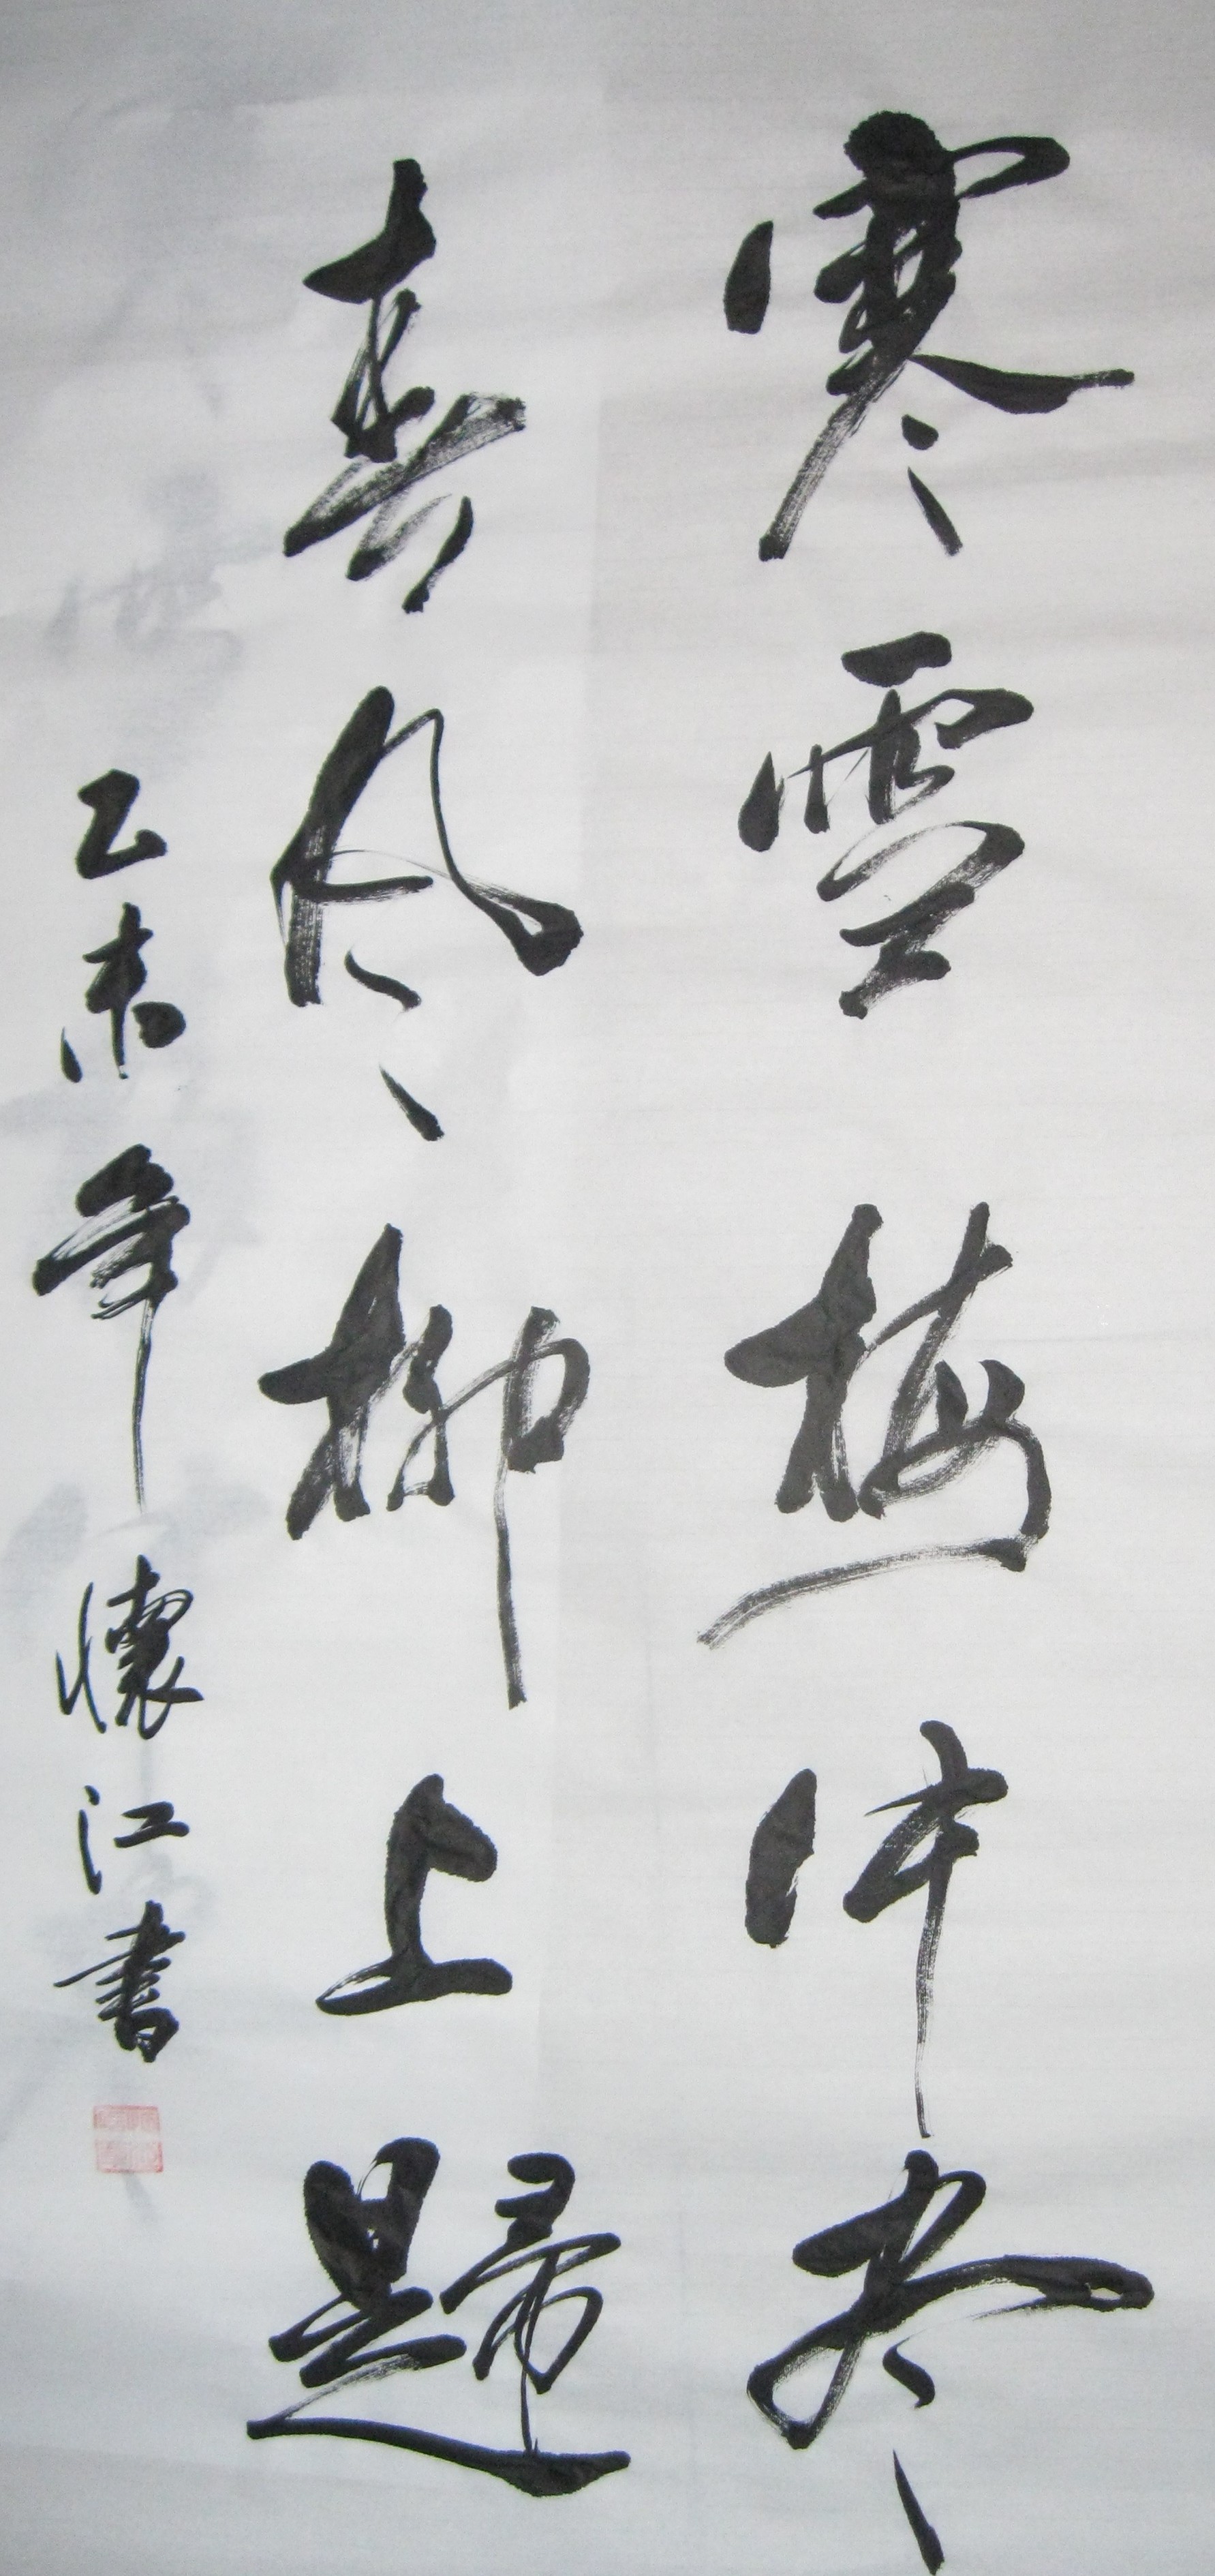 寒雪梅中尽
春风柳上歸
乙未年懷江書